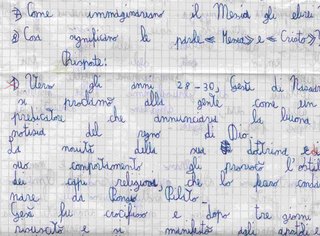 2) Come immaginavano il Messia gli ebrei?
3) Cosa significano le parole «Messia» e «Cristo»?
Risposte:
1) Verso gli anni 28-30, Gesù di Nazaret
si proclamò alla gente come un
predicatore che annunciava la buona
notizia del regno di Dio.
La novità della sua dottrina e del
suo comportamento gli provocò l'ostil
dei capi religiosi, che lo fecero condan
nare da Ponzio Pilato.
Gesù fu crocifisso e dopo tre giorni
risuscitò e si manifestò agli apostoli e